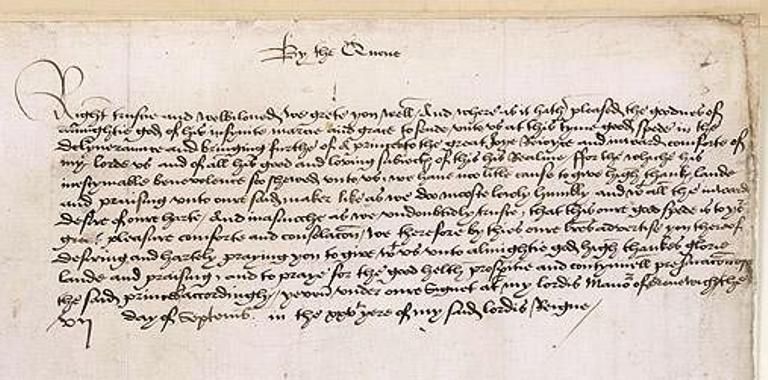 By the Quene
Right trustie and welbiloved we grete you well / And where as it hath pleased the goodnes of
almightie god of his infynite marcie and grace to sende unto us at this tyme good spede in the
delyveraunce and bringing furthe of a princes to the great joye rejoyce and inward comforte of
my lorde us and of all his good and loving subiects of this his Realme / ffor the whiche his
inestymable benevolence soo shewed unto us / we have noo litle cause to give high thanks laude
and praising unto oure said maker like as we doo moost lowly humbly and wt all the inward
desire of oure harte / And inasmuche as we undoubtidly truste that this oure good spede is to yor
great pleasure comforte and consolacon / we therefore by thies oure lres advertise you therof
desiring and hartely praying you to give wt us unto almightie god high thanks glorie
laude and praising / and to praye for the good helth prosperitie and contynuell preseruacion of
the said princes accordingly / yeven under oure Signet at my lordis Mano of Grenewiche the
day of Septembr in the xxvti yere of my said lordis Reigne /